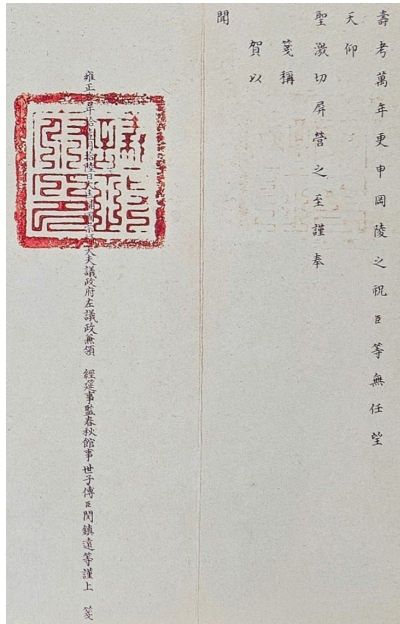 壽考萬年更申岡陵之祝臣等無任望
天仰
聖激切屏營之至謹奉
箋稱
賀以
聞
雍正年拾月拾陸日大匡輔國崇祿大夫議政府左議政兼領 經筵事監春秋館事世子傅臣閔鎮遠等謹上 箋